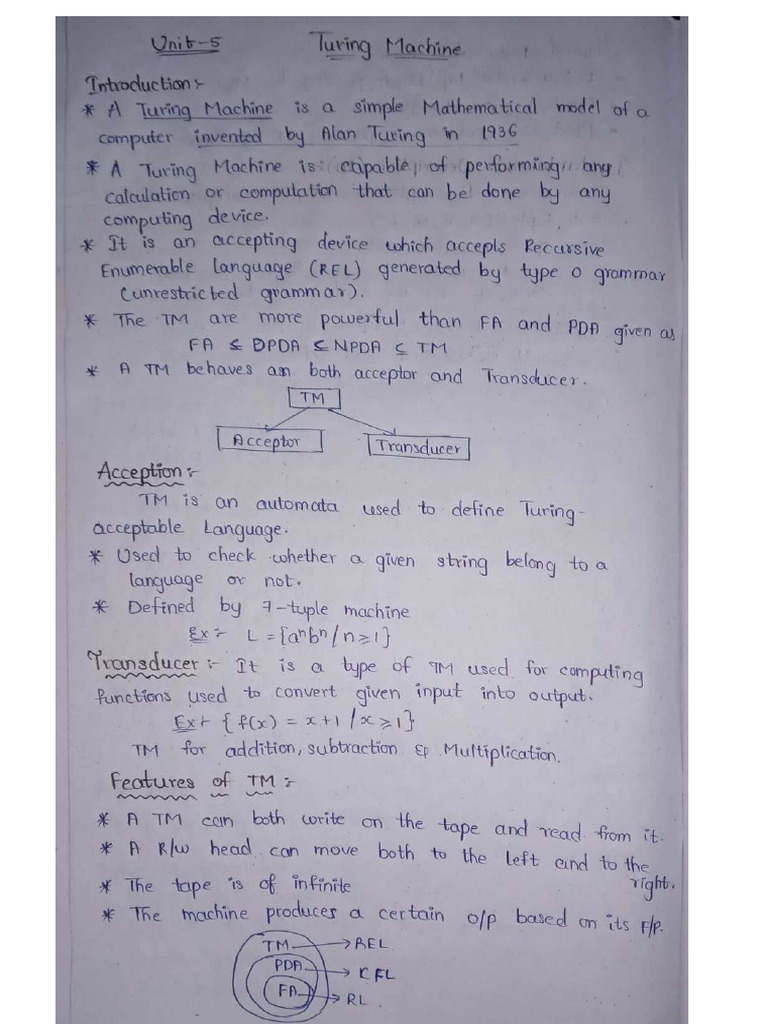 Unit-5 Turing Machine
Introduction:-
* A Turing Machine is a simple Mathematical model of a
computer invented by Alan Turing in 1936
* A Turing Machine is capable of performing any
calculation or compulation that can be done by any
computing device.
* It is an accepting device which accepls Recursive
Enumerable language (REL) generated by type 0 grammar
(unrestricted grammar).
* The TM are more powerful than FA and PDA given as
FA ≤ DPDA ≤ NPDA ≤ TM
* A TM behaves as both acceptor and Transducer.
TM
Acceptor Transducer
Acception:-
TM is an automata used to define Turing-
acceptable Language.
* Used to check whether a given string belong to a
language or not.
* Defined by 7-tuple machine
Ex:- L = {aⁿbⁿ/n≥1}
Transducer:- It is a type of TM used for computing
functions used to convert given input into output.
Ex:- {f(x) = x+1 / x≥1}
TM for addition, subtraction & Multiplication.
Features of TM:-
* A TM can both write on the tape and read from it.
* A R/W head can move both to the left and to the
right.
* The tape is of infinite
* The machine produces a certain o/p based on its I/P.
TM → REL
PDA → CFL
FA → RL.